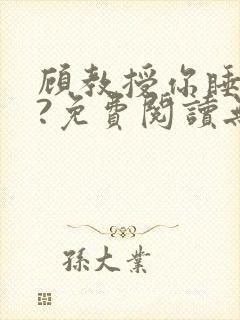 顾教授你睡
?免費閱讀
孫大業